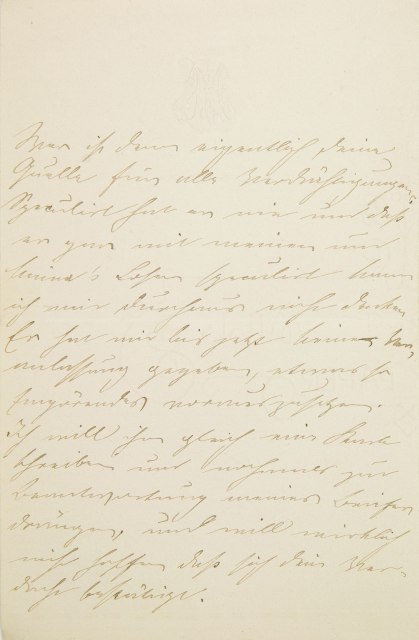 Wer ist denn eigentlich Deine
Quelle für alle Verdächtigungen,
Speculirt hat er nie und daß
er gar mit meinem und
Speculirt kann
ich mir durchaus nicht denken
Er hat mir bis jetzt keine Ver-
anlassung gegeben, etwas so
Empörendes vorauszusetzen.
Ich will ihm gleich eine Karte
schreiben und nochmals zur
Beantwortung meines Briefes
drängen, und will wirklich
nicht hoffen daß sich Dein Ver-
dacht bestätigt.